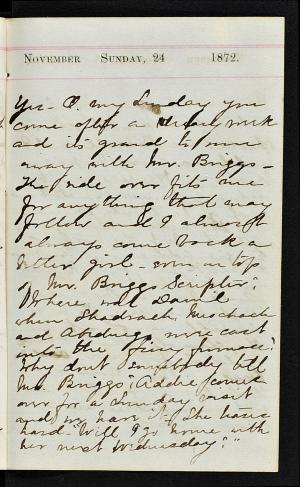 November Sunday, 24 1872.
Yes - O. my Sunday you
come after a weary week
and it is grand to
away with Mr. Briggs -
The ride over fits me
for anything that may
follow and I almost
always come back a
better girl - even on top
of Mr. Briggs Scripter,
"Where was Daniel
when Shadrach, Meschach
and Abednego were cast
into the firey furnace?
Why dont somebody tell
Mr. Briggs? Addie comes
over for a Sunday visit
and we have it. She teases
hard - "Will I go home with
her next Wednesday?"